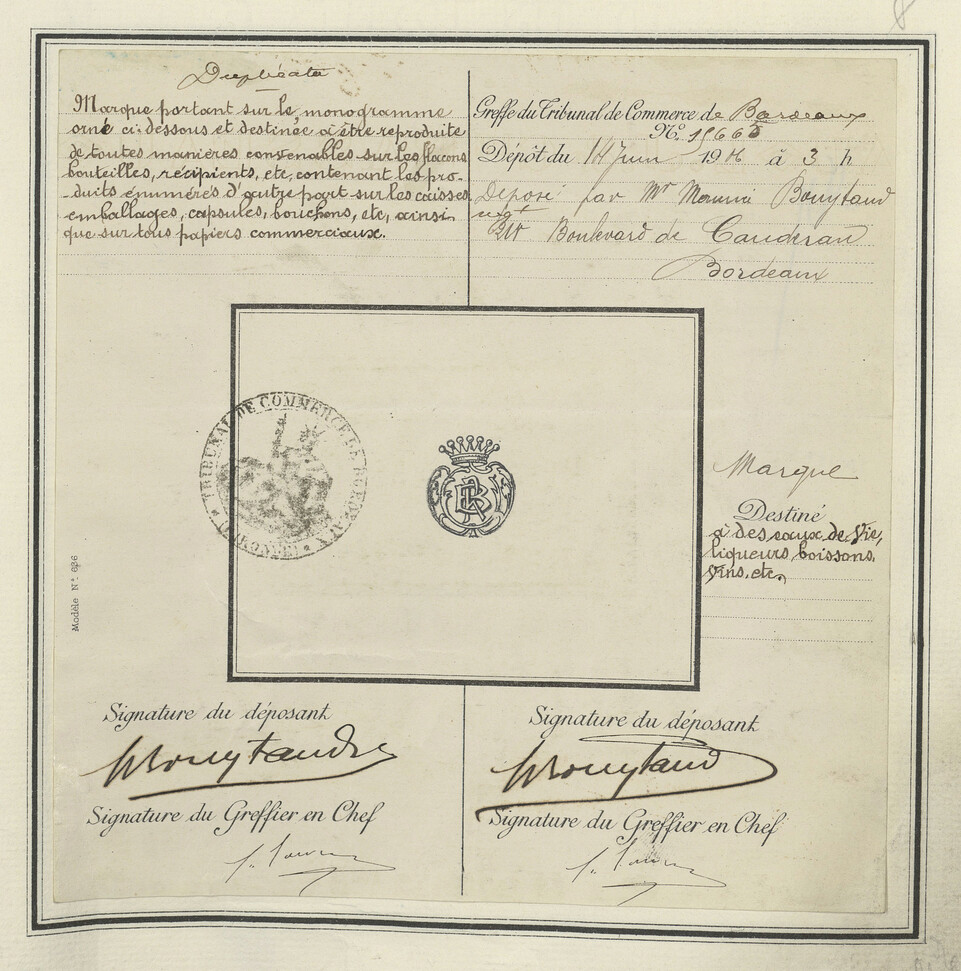 Duplicata
Marque portant sur le monogramme
orné ci-dessous et destinée à être reproduite
de toutes manières convenables sur les flacons
bouteilles, récipients, etc, contenant les pro-
duits énumérés d'autre part sur les caisses
emballages, capsules, bouchons, etc, ainsi
que sur tous papiers commerciaux.
Greffe du Tribunal de Commerce de Bordeaux
No.
Dépôt du 14 Juin 19 à 3 h
Déposé par Mr Bouytaud
négt
Boulevard de Cauderan
Bordeaux
TRIBUNAL DE COMMERCE DE BORDEAUX
(GIRONDE)
BR
Marque
Destiné
à des eaux de Vie,
liqueurs, boissons,
Vins, etc.
Modèle No. 686
Signature du déposant
Signature du déposant
Bouytaud
Signature du Greffier en Chef
Signature du Greffier en Chef